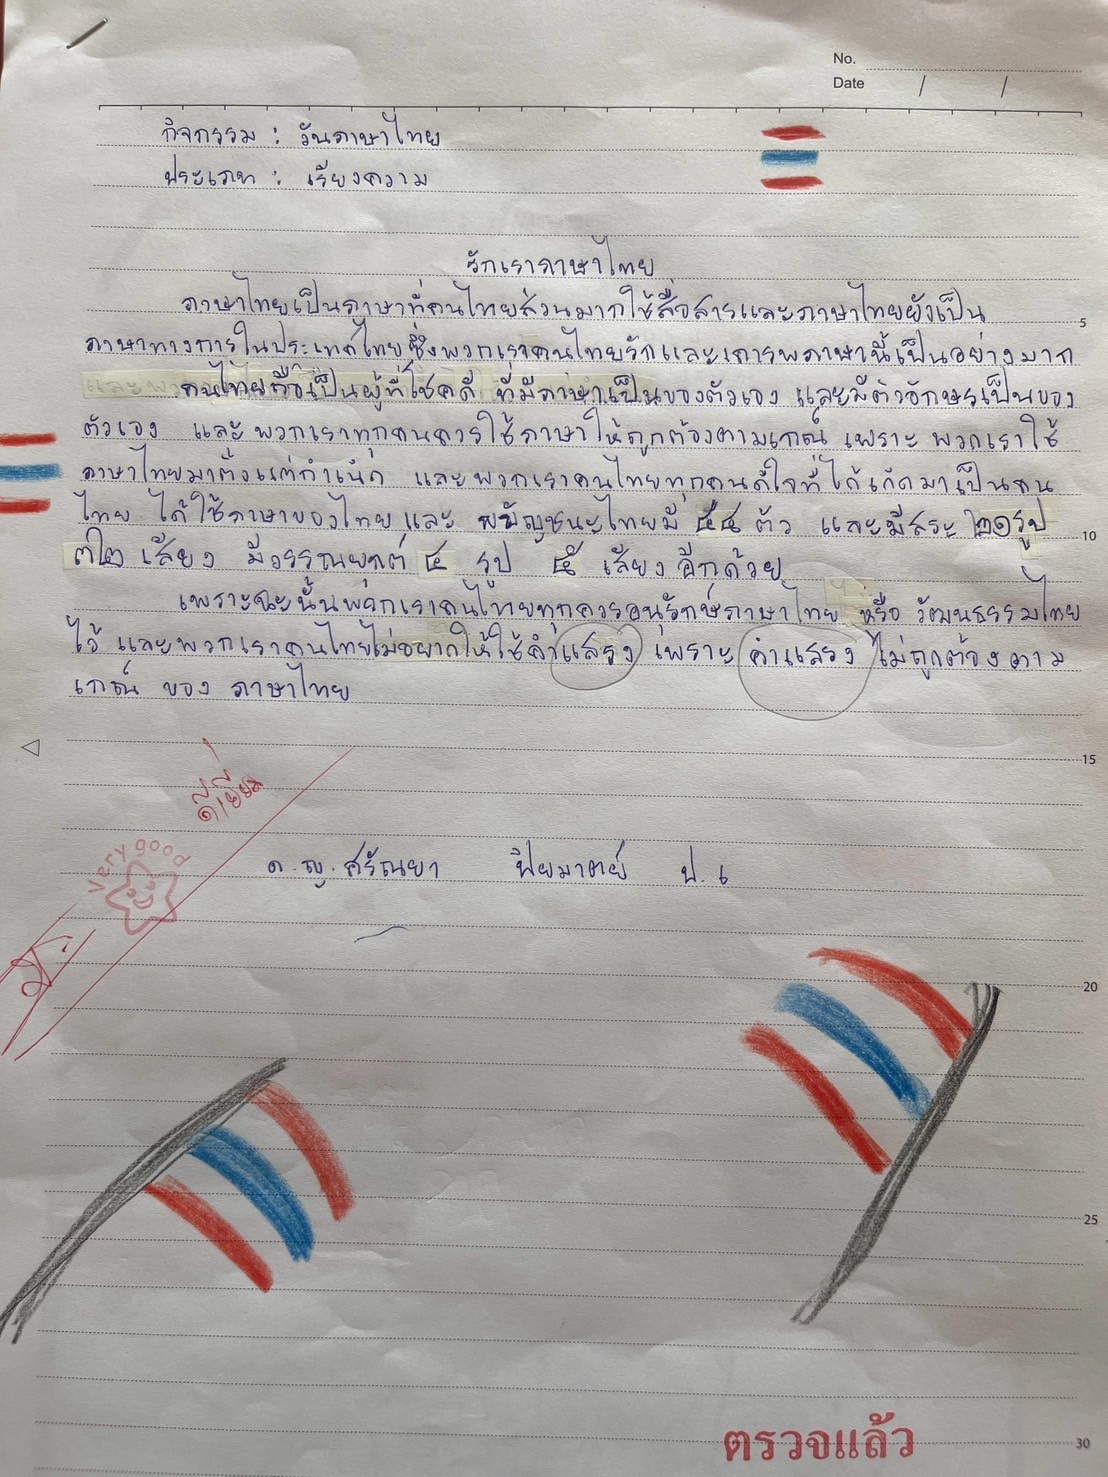 No.
Date / /
กิจกรรม : วันภาษาไทย
ประเภท : เรียงความ
รักเราภาษาไทย
ภาษาไทยเป็นภาษาที่คนไทยส่วนมากใช้สื่อสารและภาษาไทยยังเป็น
5
ภาษาทางการในประเทศไทย ซึ่งพวกเราคนไทยรักและเคารพภาษานี้เป็นอย่างมาก
คนไทยถือเป็นผู้ที่โชคดี ที่มีภาษาเป็นของตัวเอง และมีตัวอักษรเป็นของ
ตัวเอง และ พวกเราทุกคนควรใช้ภาษาให้ถูกต้องตามเกณฑ์ เพราะ พวกเราใช้
ภาษาไทยมาตั้งแต่กำเนิด และพวกเราคนไทยทุกคนดีใจที่ได้เกิดมาเป็นคน
ไทย ได้ใช้ภาษาของไทย และ พยัญชนะไทยมี ๔๔ ตัว และมีสระ ๒๑ รูป
10
๓๒ เสียง มีวรรณยุกต์ ๔ รูป ๕ เสียง อีกด้วย
เพราะฉะนั้นพวกเราคนไทยทุกควรอนุรักษ์ภาษาไทย หรือ วัฒนธรรมไทย
ไว้ และพวกเราคนไทยไม่อยากให้ใช้คำแสรง เพราะ คำแสรง ไม่ถูกต้องตาม
เกณฑ์ ของ ภาษาไทย
15
ดีเยี่ยม
Very good
ด.ญ.ศรัณยา ป.๖
20
25
ตรวจแล้ว
30